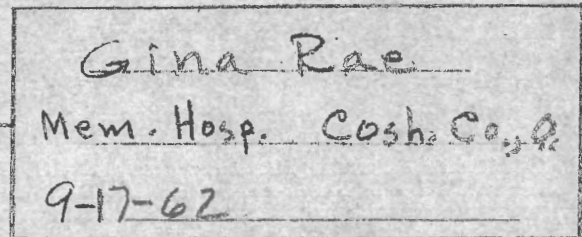 Gina Rae
Mem. Hosp. Cosh. Co., O.
9-17-62